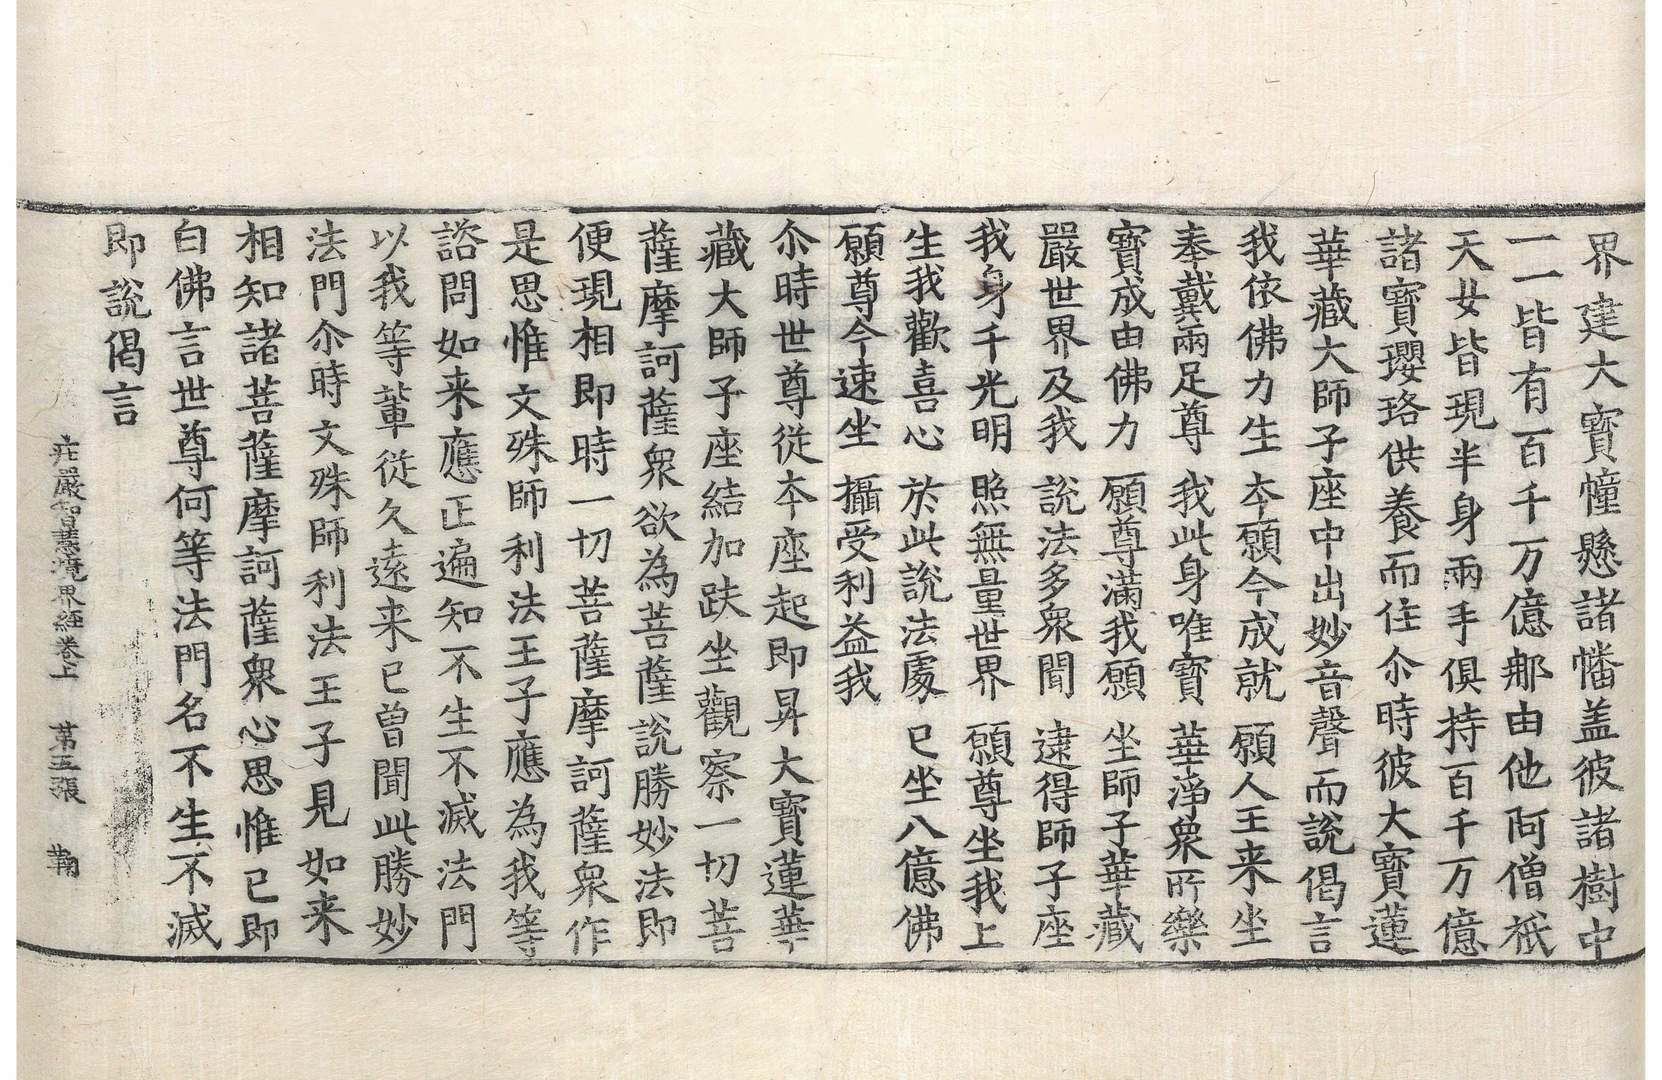 界建大寳幢懸諸幡盖彼諸樹中
一一皆有百千万億𨚗由他阿僧祇
天女皆現半身兩手俱持百千万億
諸寳瓔珞供養而住尒時彼大寳蓮
華藏大師子座中出妙音聲而說偈言
我依佛力生 夲願今成就 願人王来坐
奉戴兩足尊 我此身唯寳 華淨衆所樂
寳成由佛力 願尊滿我願 坐師子華藏
嚴世界及我 說法多衆聞 逮得師子座
我身千光明 照無量世界 願尊坐我上
生我歡喜心 於此說法處 已坐八億佛
願尊今速坐 攝受利益我
尒時世尊從夲座起即昇大寳蓮華
藏大師子座結加趺坐觀察一切菩
薩摩訶薩衆欲為菩薩說勝妙法即
便現相即時一切菩薩摩訶薩衆作
是思惟文殊師利法王子應為我等
諮問如来應正遍知不生不滅法門
以我等軰從久遠来已曽聞此勝妙
法門尒時文殊師利法王子見如来
相知諸菩薩摩訶薩衆心思惟已即
白佛言世尊何等法門名不生不滅
即說偈言
庄嚴智慧境界經卷上 第五張 鞠